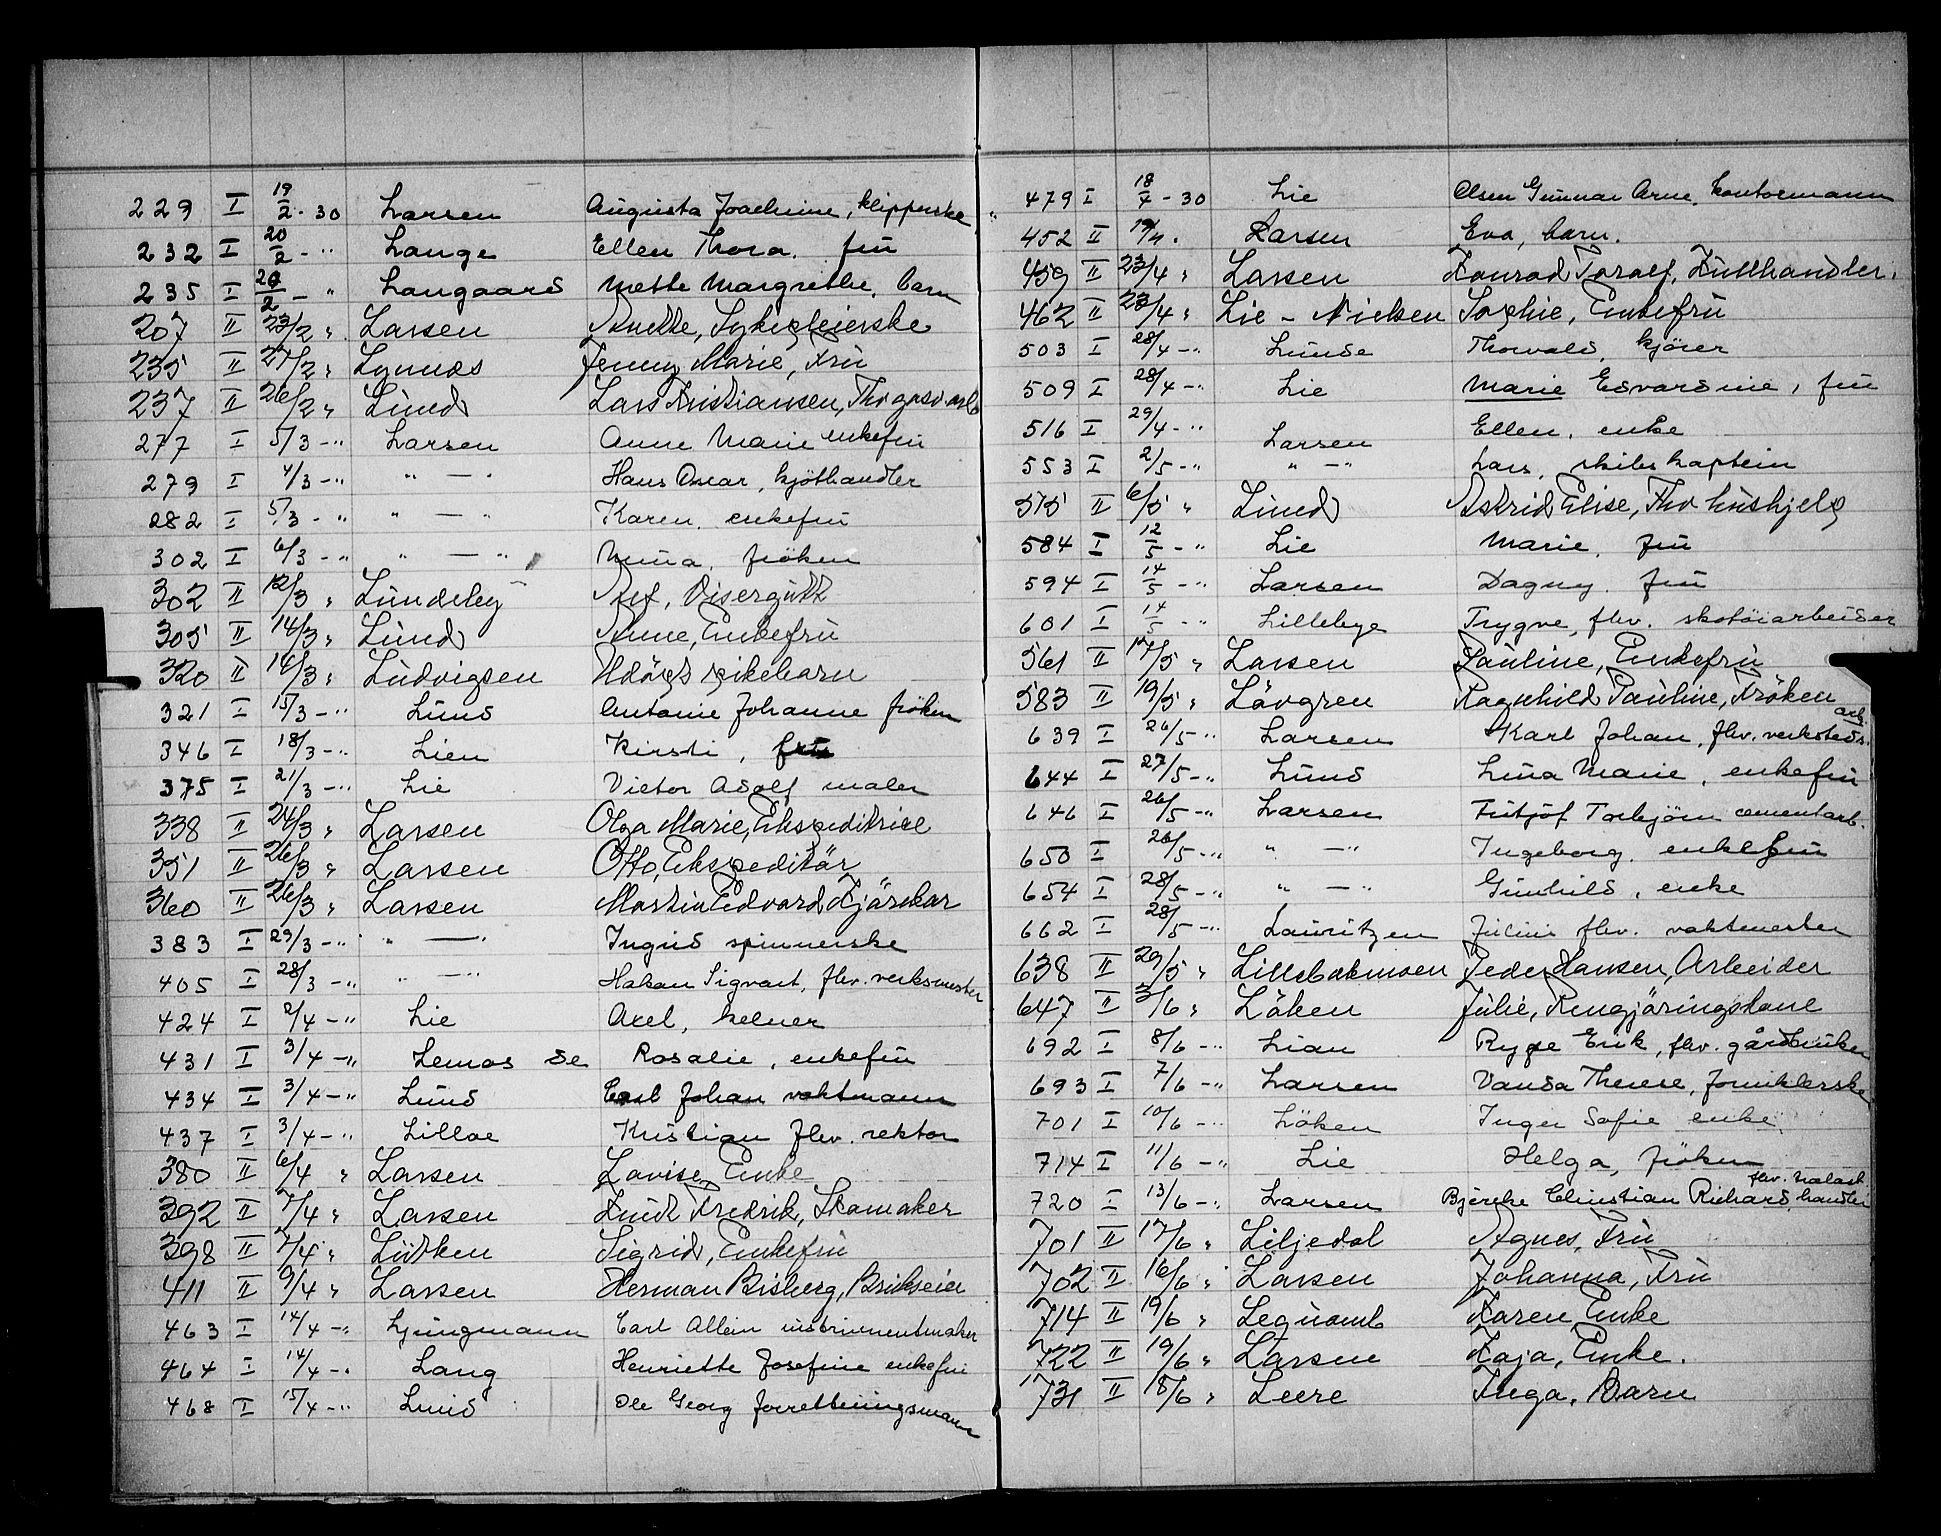 229 I 19/2 - 30 Larsen Augusta Joachime, klipperske
232 I 20/2 - " Lange Ellen Thora. fru
235 I 20/2 - " Langaard Mette Margrethe. barn
207 II 23/2 " Larsen Anette, Sykepleierske
235 II 27/2 " Lynnæs Jenny Marie, Fru
237 II 26/2 " Lund Lars Kristiansen, Fhv gasv. arb
277 I 5/3 - " Larsen Anne Marie enkefru
279 I 4/3 - " " — " Hans Oscar, kjøthandler
282 I 5/3 - " " — " Karen. enkefru
302 I 6/3 - " " — " Mina. frøken
302 II 12/3 " Lundeby Alf, Visergutt
305 II 14/3 " Lund Anne, Enkefru
320 II 14/3 " Ludvigsen Udöpt pikebarn
321 I 15/3 - " Lund Antonie Johanne frøken
346 I 18/3 - " Lien Kirsti, fru
375 I 21/3 - " Lie Victor Adolf maler
338 II 24/3 " Larsen Olga Marie, Ekspeditrice
351 II 26/3 " Larsen Otto, Ekspeditör
360 II 26/3 " Larsen Martin Edvard Kjörekar
383 I 29/3 - " " — " Ingrid spinnerske
405 I 28/3 - " " — " Hakan Sigvart, fhv. verksmester
424 I 2/4 - " Lie Axel, kelner
431 I 3/4 - " Lemos de Rosalie, enkefru
434 I 3/4 - " Lund Carl Johan vaktmann
437 I 3/4 - " Lilloe Kristian fhv. rektor
380 II 6/4 " Larsen Lovise, Enke
392 II 7/4 " Larsen Knut Fredrik, Skomaker
398 II 7/4 " Lütken Sigrid, Enkefru
411 II 9/4 " Larsen Herman Bisberg, Brukseier
463 I 14/4 - " Ljungmann Carl Allein instrumentmaker
464 I 14/4 - " Lang Henriette Josefine enkefru
468 I 15/4 - " Lund Ole Georg forretningsmann
" 479 I 18/4 - 30 Lie Olsen Gunnar Arne. kontormann
452 II 19/4 " Larsen Eva, barn.
459 II 23/4 " Larsen Konrad Toralf, Kullhandler.
462 II 23/4 " Lie - Nielsen Sophie, Enkefru
503 I 28/4 - " Lunde Thorvald, kjører
509 I 28/4 - " Lie Marie Edvardine, fru
516 I 29/4 - " Larsen Ellen. enke
553 I 2/5 - " " — " Lars, skibskaptein
515 II 6/5 " Lund Astrid Elise, Fhv hushjelp
584 I 12/5 - " Lie Marie. fru
594 I 14/5 - " Larsen Dagny. fru
601 I 14/5 - " Lillebye Trygve, fhv. skotøiarbeider
561 II 17/5 " Larsen Pauline, Enkefru
583 II 19/5 " Lövgren Ragnhild Pauline, Fröken
639 I 26/5 - " Larsen Karl Johan, fhv. verksteds. arb.
644 I 27/5 - " Lund Lina Marie, enkefru
646 I 26/5 - " Larsen Fritjof Torbjörn cementarb.
650 I 26/5 - " " — " Ingeborg. enkefru
654 I 28/5 - " " — " Gunhild, enke
662 I 28/5 - " Lauritzen Julius fhv. vaktmester
638 II 29/5 " Lillebakmoen Peder Hansen, Arbeider
647 II 3/6 " Löken Julie, Rengjöringskone
692 I 8/6 - " Lian Rype Erik, fhv. gårdbruker
693 I 7/6 - " Larsen Vanda Therese, forniklerske
701 I 10/6 - " Löken Inger Sofie enke
714 I 11/6 - " Lie Helga, frøken
720 I 13/6 - " Larsen Bjercke Christian Richard, fhv. handler
701 II 17/6 " Liljedal Agnes, Fru
702 II 16/6 " Larsen Johanna, Fru
714 II 19/6 " Karen Enke
722 II 19/6 " Larsen Kaja, Enke.
731 II 18/6 " Leere Inga, Barn